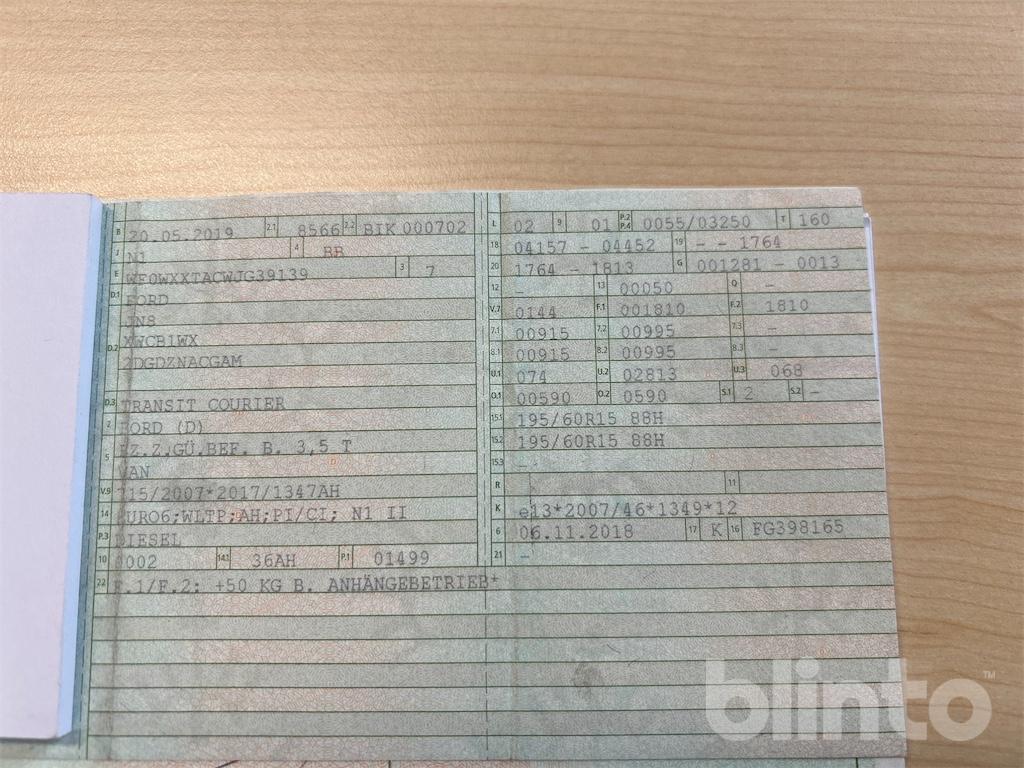 B 20.05.2019 2.1 8566 2.2 BIK 000702
J N1 4 BB
E WF0WXXTACWJG39139 3 7
D.1 FORD
JN8
D.2 XWCB1WX
2DGDZNACGAM
D.3 TRANSIT COURIER
2 FORD (D)
5 FZ.Z.GÜ.BEF. B. 3,5 T
VAN
V.9 715/2007*2017/1347AH
14 EURO6;WLTP;AH;PI/CI; N1 II
P.3 DIESEL
10 0002 14.1 36AH P.1 01499
22 F.1/F.2: +50 KG B. ANHÄNGEBETRIEB*
L 02 9 01 P.2 P.4 0055/03250 T 160
18 04157 - 04452 19 - - 1764
20 1764 - 1813 G 001281 - 0013
12 - 13 00050 Q -
V.7 0144 F.1 001810 F.2 1810
7.1 00915 7.2 00995 7.3 -
8.1 00915 8.2 00995 8.3 -
U.1 074 U.2 02813 U.3 068
O.1 00590 O.2 0590 S.1 2 S.2 -
15.1 195/60R15 88H
15.2 195/60R15 88H
15.3 -
R 11
K e13*2007/46*1349*12
6 06.11.2018 17 K 16 FG398165
21 -
blinto™